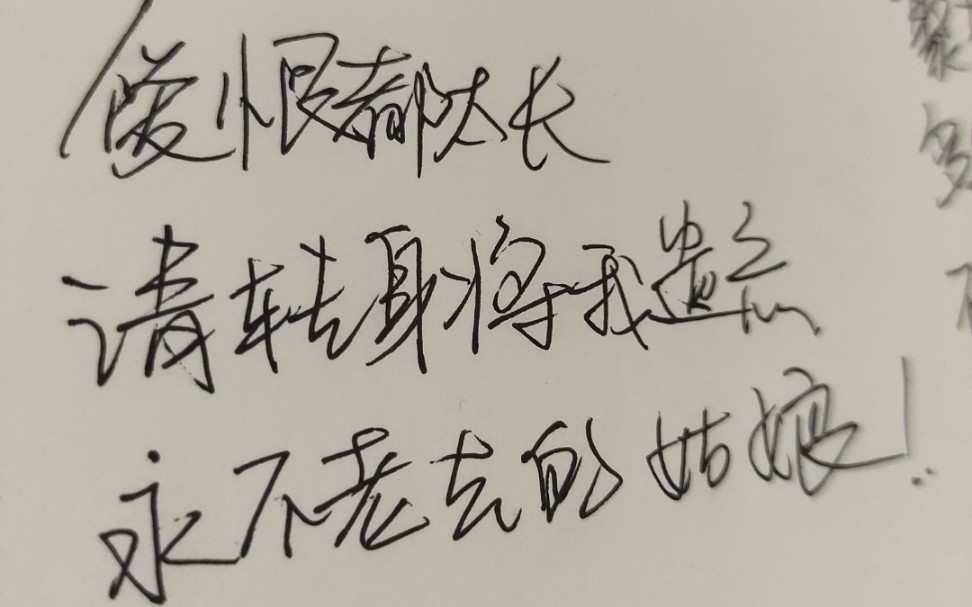 爱恨都太长
请转身将我遗忘
永不老去的姑娘!